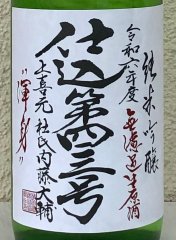 純米吟醸
無濾過生原酒
令和六年度
仕込第四三号
上喜元 杜氏内藤大輔
"渾身"